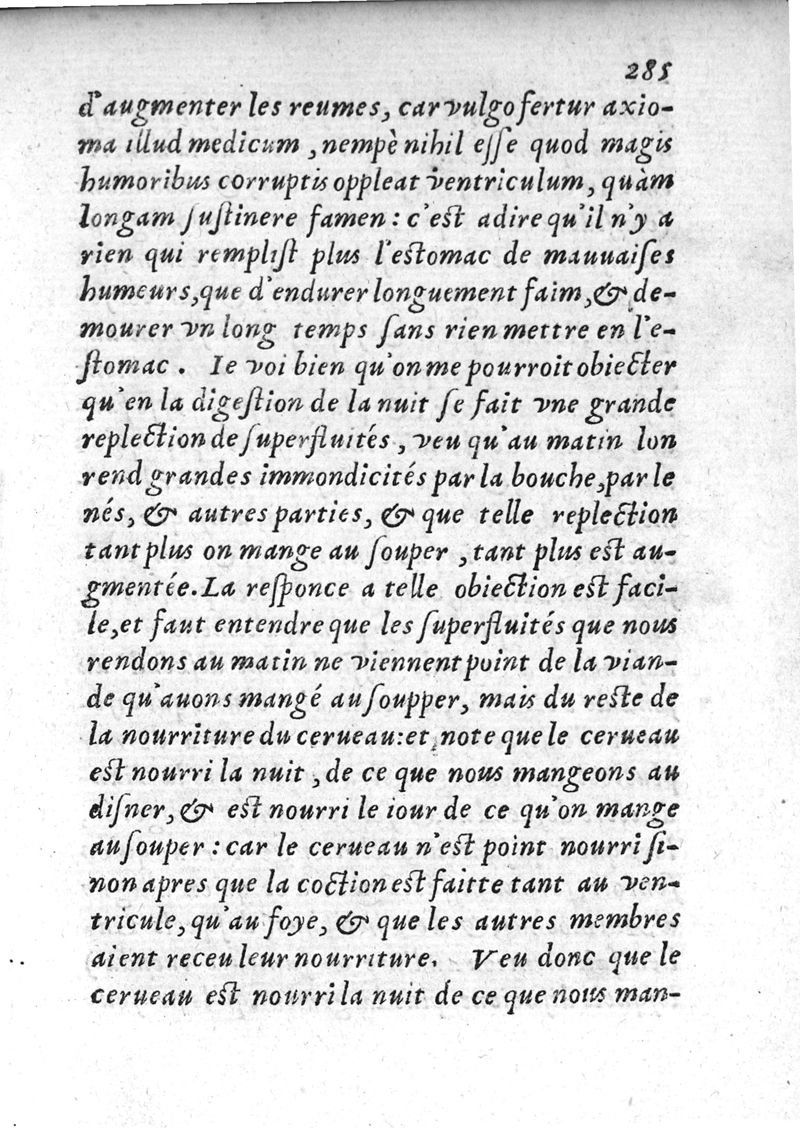 285
d'augmenter les reumes, car vulgo fertur axio-
ma illud medicum, nempè nihil eſſe quod magis
humoribus corruptis oppleat ventriculum, quàm
longam ſuſtinere famen : c'est adire qu'il n'y a
rien qui rempliſt plus l'estomac de mauuaiſes
humeurs, que d'endurer longuement faim, & de-
mourer vn long temps ſans rien mettre en l'e-
ſtomac. Ie voi bien qu'on me pourroit obiecter
qu'en la digeſtion de la nuit ſe fait vne grande
replection de ſuperfluités, veu qu'au matin lon
rend grandes immondicités par la bouche, par le
nés, & autres parties, & que telle replection
tant plus on mange au ſouper, tant plus est au-
gmentée. La reſponce a telle obiection est faci-
le, et faut entendre que les ſuperfluités que nous
rendons au matin ne viennent point de la vian-
de qu'auons mangé au ſoupper, mais du reste de
la nourriture du cerueau: et note que le cerueau
est nourri la nuit, de ce que nous mangeons au
diſner, & est nourri le iour de ce qu'on mange
au ſouper : car le cerueau n'est point nourri ſi-
non apres que la coction est faitte tant au ven-
tricule, qu'au foye, & que les autres membres
aient receu leur nourriture. Veu donc que le
cerueau est nourri la nuit de ce que nous man-